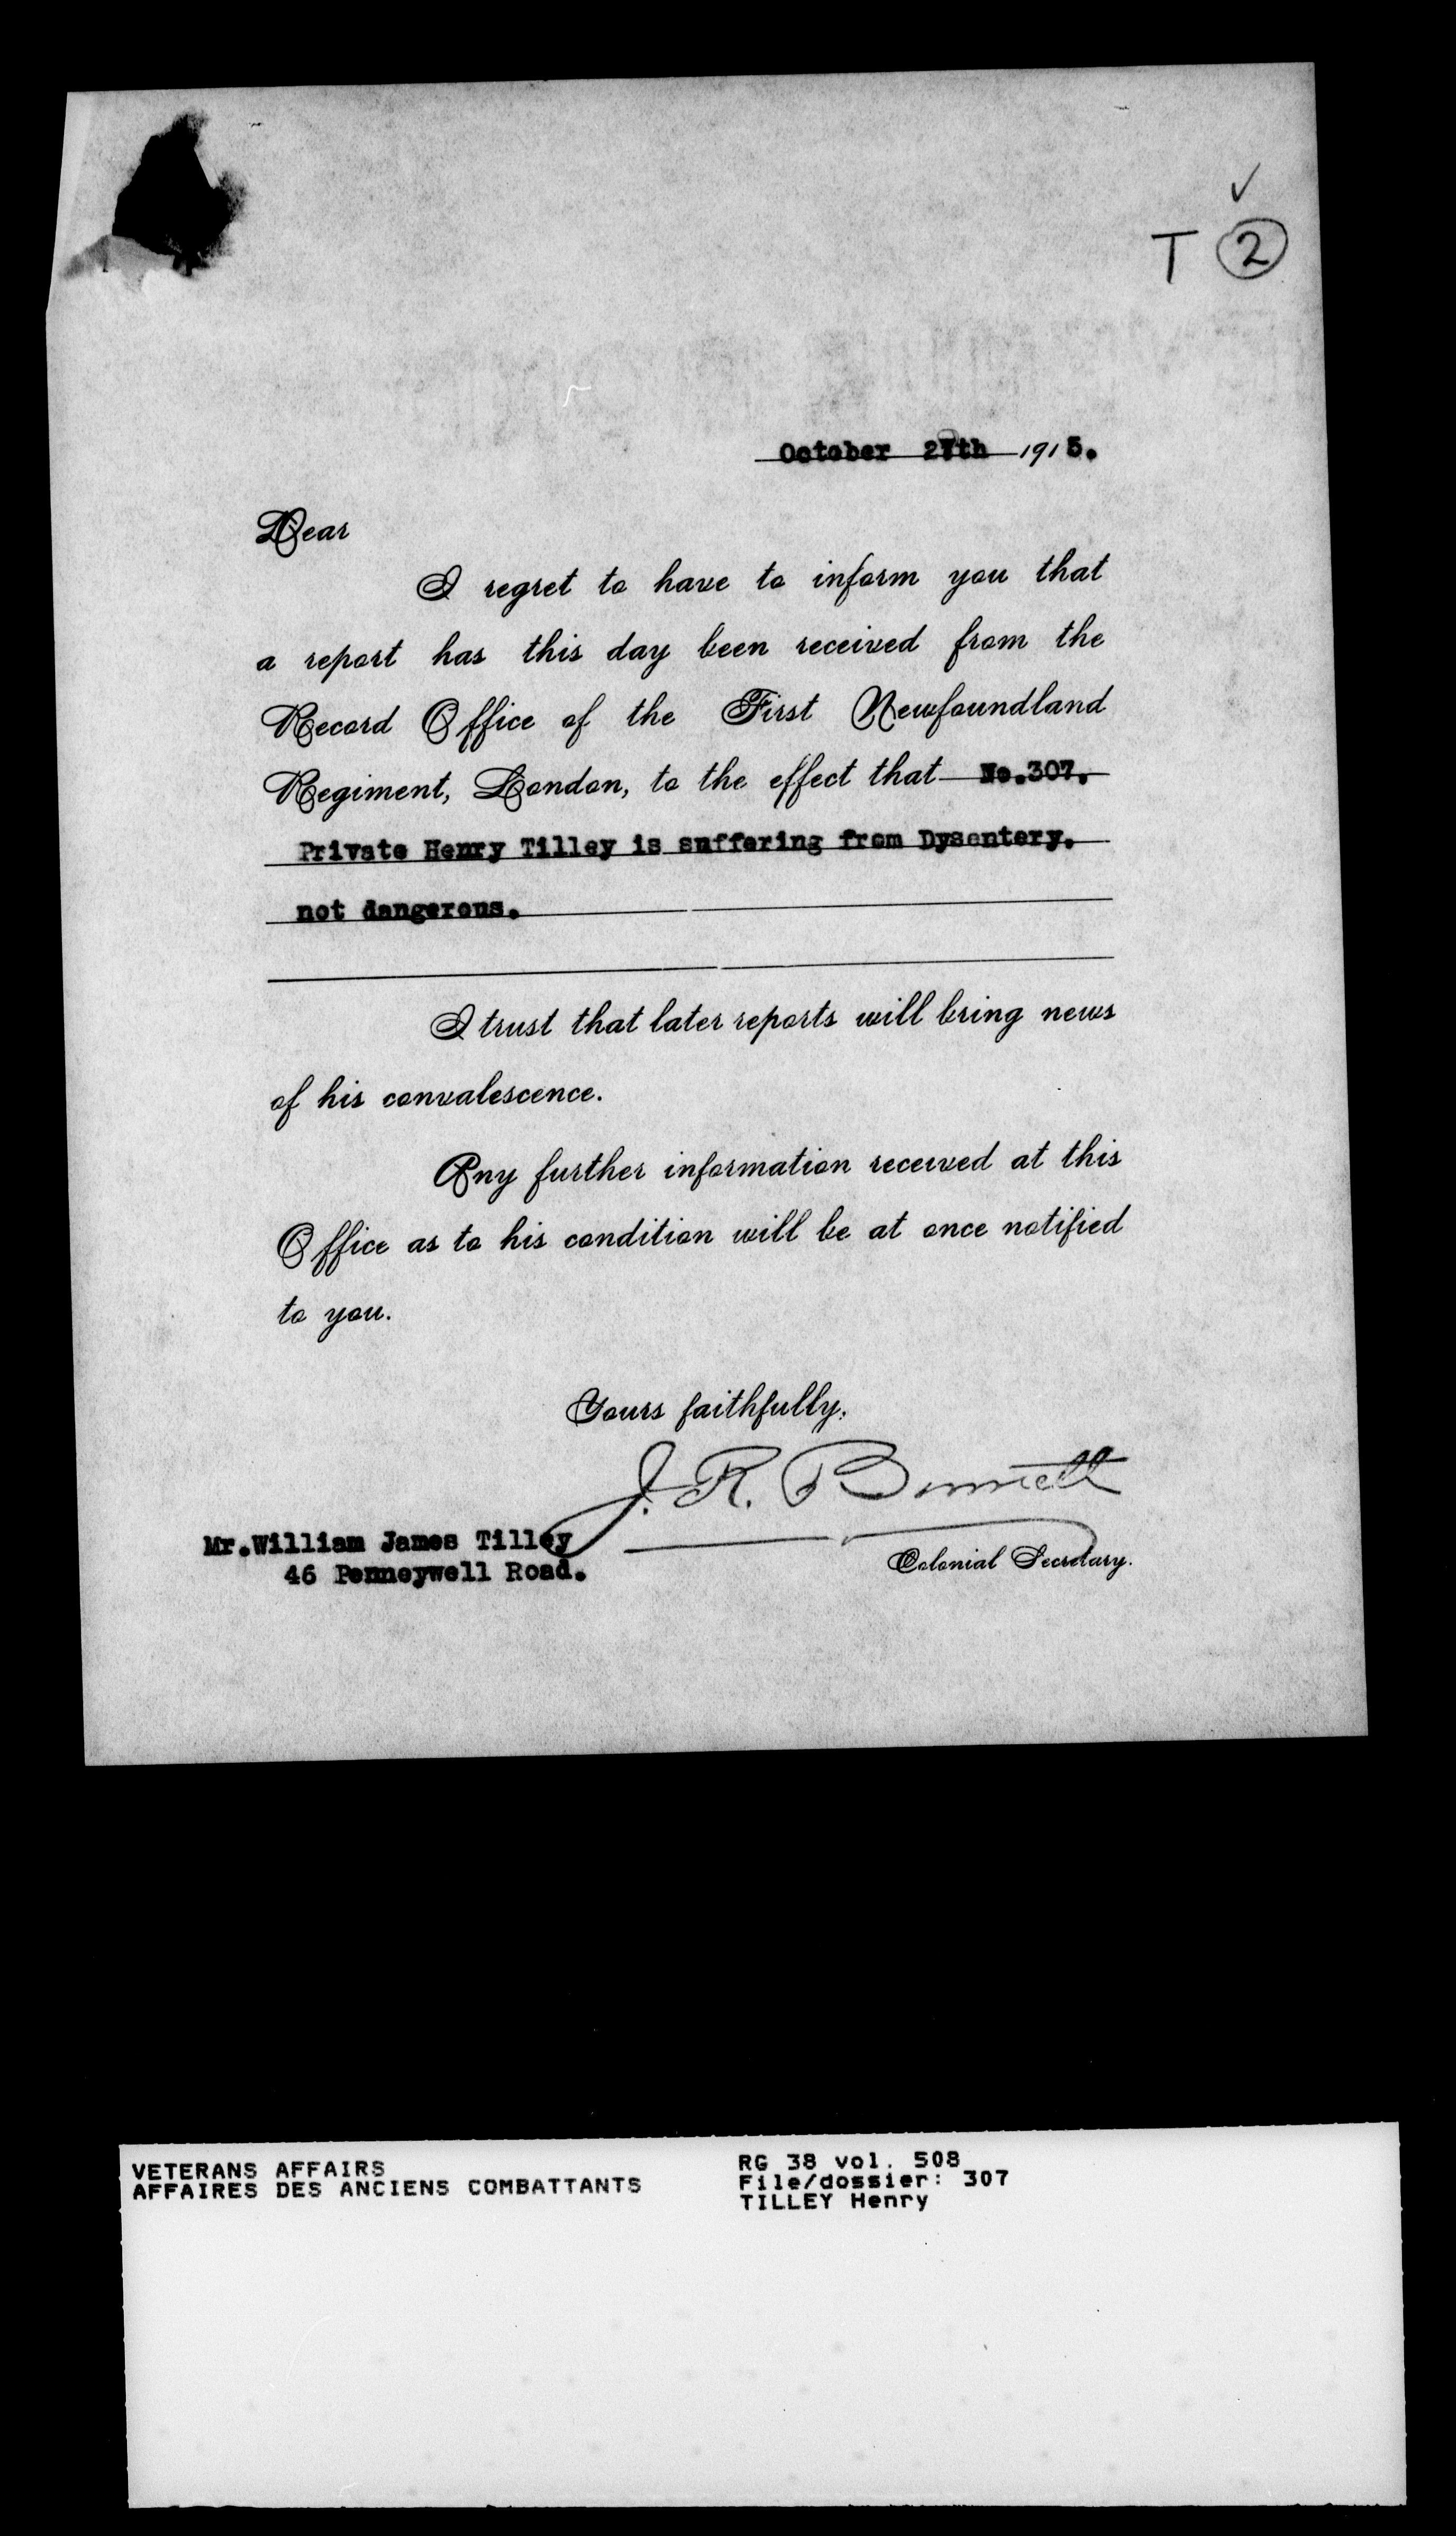 ✓
T ②
October 27th 1915.
Dear
I regret to have to inform you that
a report has this day been received from the
Record Office of the First Newfoundland
Regiment, London, to the effect that No.307.
Private Henry Tilley is suffering from Dysentery.
not dangerous.
I trust that later reports will bring news
of his convalescence.
Any further information received at this
Office as to his condition will be at once notified
to you.
Yours faithfully,
J. R. Bennett
Colonial Secretary.
Mr.William James Tilley
46 Penneywell Road.
VETERANS AFFAIRS
AFFAIRES DES ANCIENS COMBATTANTS
RG 38 vol. 508
File/dossier: 307
TILLEY Henry